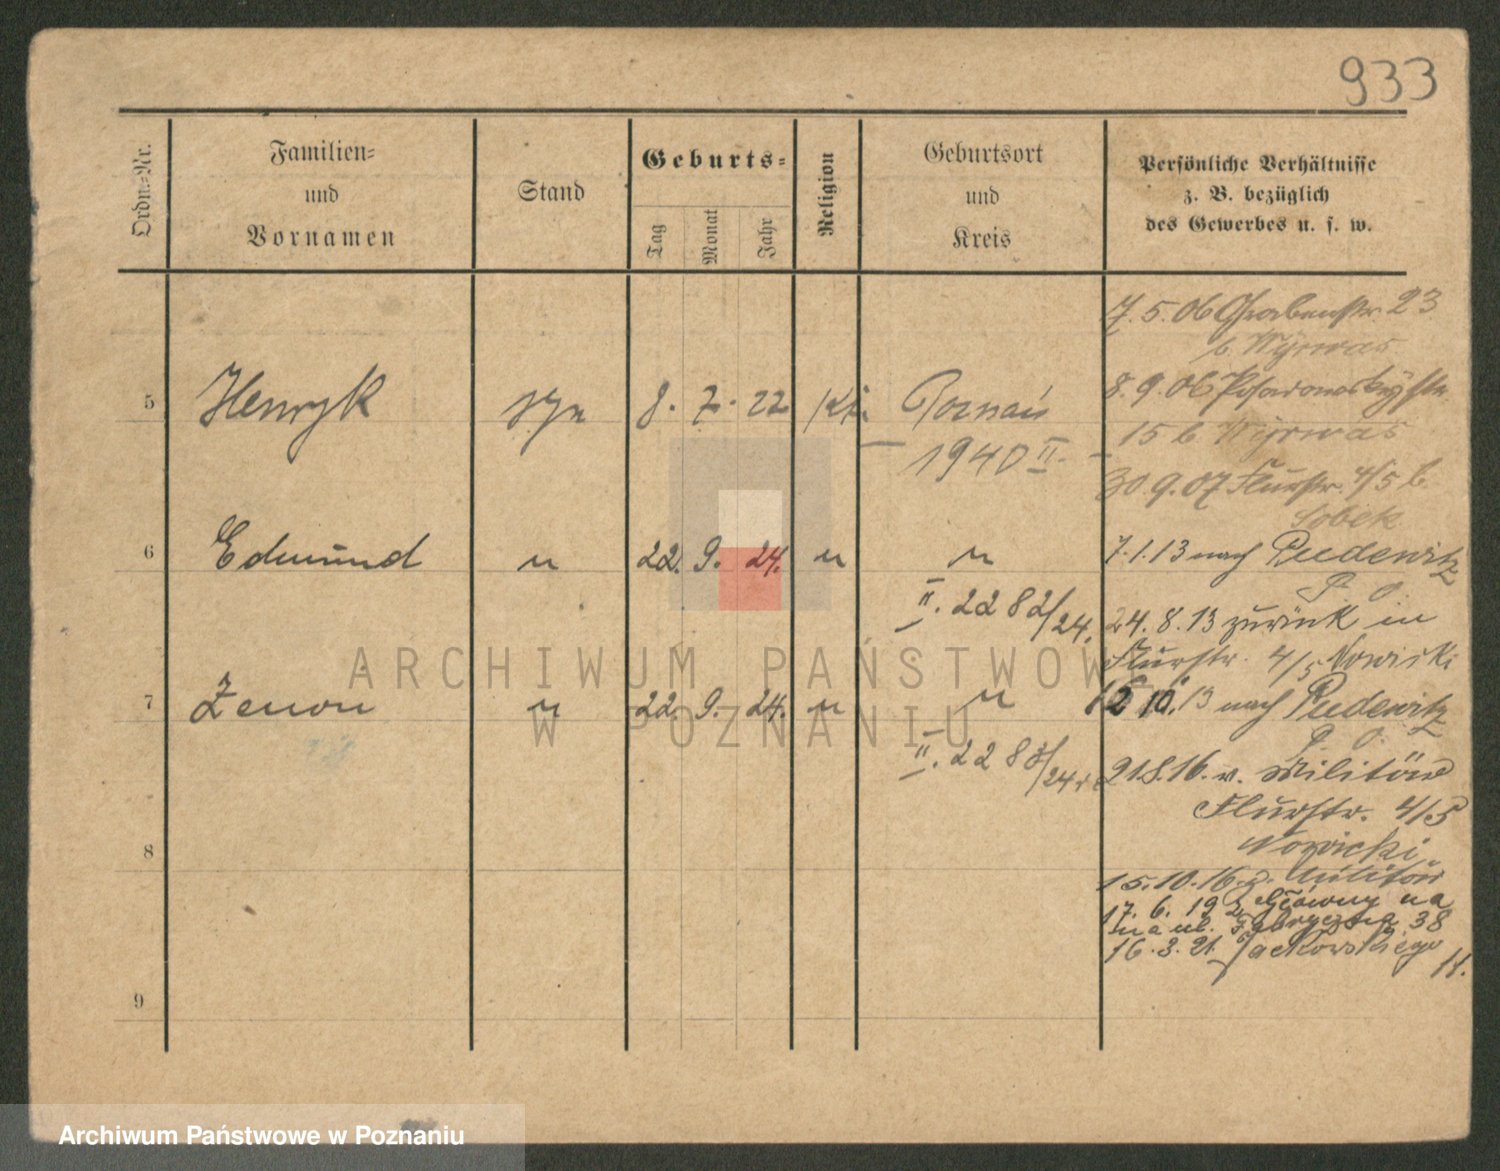 933
Ordn.-Nr.
Familien-
und
Vornamen
Stand
Geburts-
Tag
Monat
Jahr
Religion
Geburtsort
und
Kreis
Persönliche Verhältnisse
z. B. bezüglich
des Gewerbes u. s. w.
7.5.06 Grabenstr. 23
b. Wyrwas
5 Henryk syn 8. 7. 22 kt. Poznań
1940 II.
8.9.06
15 b Wyrwas
30.9.07 Flurstr. 4/5 b.
Sobek
6 Edmund " 22. 9. 24. " "
II. 2282/24.
7.1.13 nach Pudewitz
P. O.
24.8.13 zurück in
Flurstr. 4/5 Nowicki
7 Zenon " 22. 9. 24. " "
II. 2283/24.
10.13 nach Pudewitz
P. O.
21.8.16. v. Militär
Flurstr. 4/5
Nowicki
8
15.10.16 z. Militär
17. 6. 19 z Główny na
na ul. Fabryczna 38
16.3.21. Jackowskiego
11.
9
ARCHIWUM PAŃSTWOWE
W POZNANIU
Archiwum Państwowe w Poznaniu